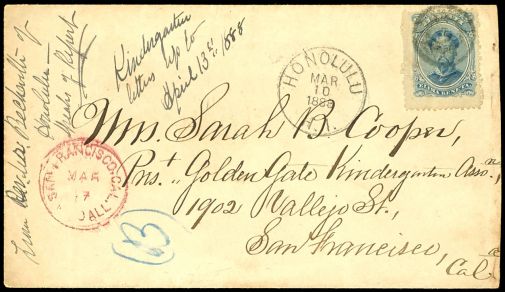 Kindergarten
letters up to
April 13th 1888
HONOLULU
MAR
10
1888
H.I.
Mrs. Sarah B. Cooper,
Prst. Golden Gate Kindergarten Asso.n,
1902 Vallejo St.,
San Francisco,
Cal.a
SAN FRANCISCO, CAL.
MAR
17
PAID ALL
From
Beckwith of
Honolulu
Speaks of